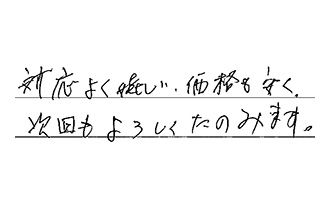 対応よく嬉しい.価格も安く.
次回もよろしくたのみます。